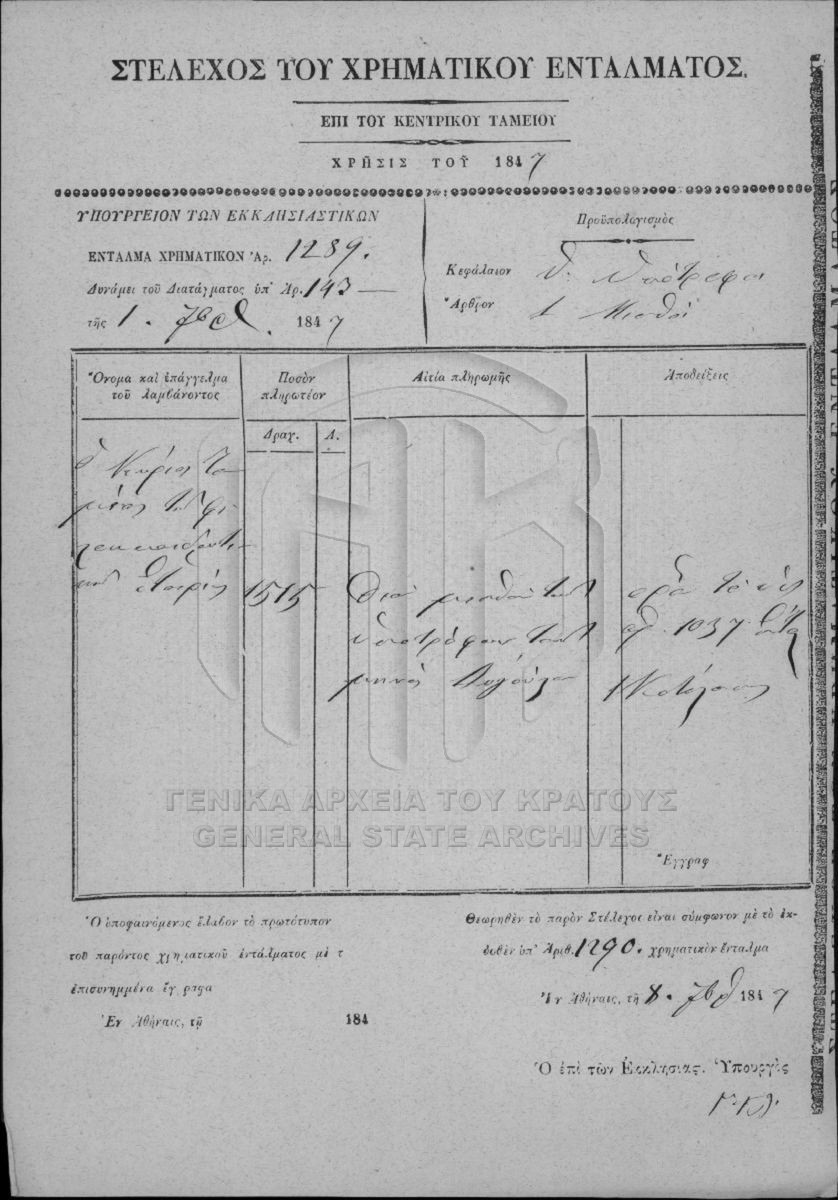 ΣΤΕΛΕΧΟΣ ΤΟΥ ΧΡΗΜΑΤΙΚΟΥ ΕΝΤΑΛΜΑΤΟΣ.
ΕΠΙ ΤΟΥ ΚΕΝΤΡΙΚΟΥ ΤΑΜΕΙΟΥ
ΧΡΗΣΙΣ ΤΟΥ 1847
ΥΠΟΥΡΓΕΙΟΝ ΤΩΝ ΕΚΚΛΗΣΙΑΣΤΙΚΩΝ
ΕΝΤΑΛΜΑ ΧΡΗΜΑΤΙΚΟΝ Ἀρ. 1289.
Δυνάμει τοῦ Διατάγματος ὑπ' Ἀρ. 143
τῆς 1. 7βρ 1847
Προϋπολογισμὸς
Κεφάλαιον
Ἄρθρον 1 Μισθοὶ
Ὄνομα καὶ ἐπάγγελμα
τοῦ λαμβάνοντος
Ποσὸν
πληρωτέον
Αἰτία πληρωμῆς
Ἀποδείξεις
Δραχ. Λ.
ὁ Κύριος Τα
μίας τῆς φι
λεκπαιδευτι
κῆς Ἑταιρίας
1515
Διὰ μισθοὺς
ὑποτρόφων τοῦ
μηνὸς
ὅρα τὸ
ἀρ. 1037
Ἔγγραφ
ΓΕΝΙΚΑ ΑΡΧΕΙΑ ΤΟΥ ΚΡΑΤΟΥΣ
GENERAL STATE ARCHIVES
Ὁ ὑποφαινόμενος ἔλαβον τὸ πρωτότυπον
τοῦ παρόντος χρηματικοῦ ἐντάλματος μὲ τ
ἐπισυνημμένα ἔγγραφα
Ἐν Ἀθήναις, τῇ 184
Θεωρηθὲν τὸ παρὸν Στέλεχος εἶναι σύμφωνον μὲ τὸ ἐκ-
δοθὲν ὑπ' Ἀριθ. 1290. χρηματικὸν ἔνταλμα
Ἐν Ἀθήναις, τῇ 8. 7βρ 1847
Ὁ ἐπὶ τῶν Ἐκκλησιας. Ὑπουργὸς